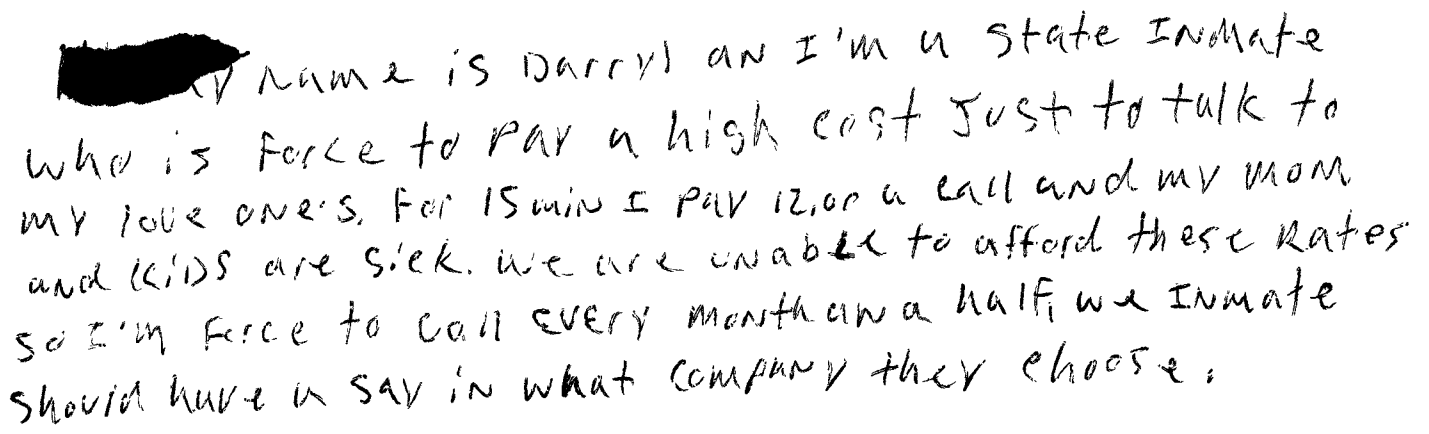 name is Darryl an I'm a state Inmate
who is force to pay a high cost Just to talk to
my love one's. For 15 min I pay 12.00 a call and my mom
and KiDS are sick. we are unable to afford these Rates
so I'm force to call EVERY month an a half, we Inmate
should have a say in what company they choose.